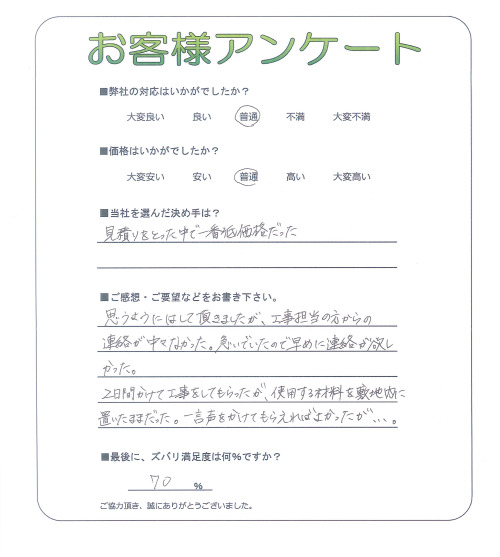 お客様アンケート
■弊社の対応はいかがでしたか？
大変良い 良い 普通 不満 大変不満
■価格はいかがでしたか？
大変安い 安い 普通 高い 大変高い
■当社を選んだ決め手は？
見積りをとった中で一番低価格だった
■ご感想・ご要望などをお書き下さい。
思うようにはして頂きましたが、工事担当の方からの
連絡が中々なかった。急いでいたので早めに連絡が欲し
かった。
2日間かけて工事をしてもらったが、使用する材料を敷地内に
置いたままだった。一言声をかけてもらえればよかったが…。
■最後に、ズバリ満足度は何%ですか？
70 %
ご協力頂き、誠にありがとうございました。